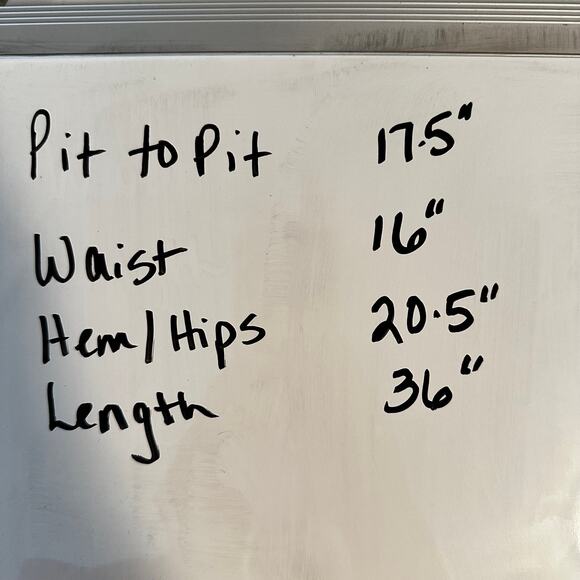 Pit to Pit 17.5"
Waist 16"
Hem/Hips 20.5"
Length 36"